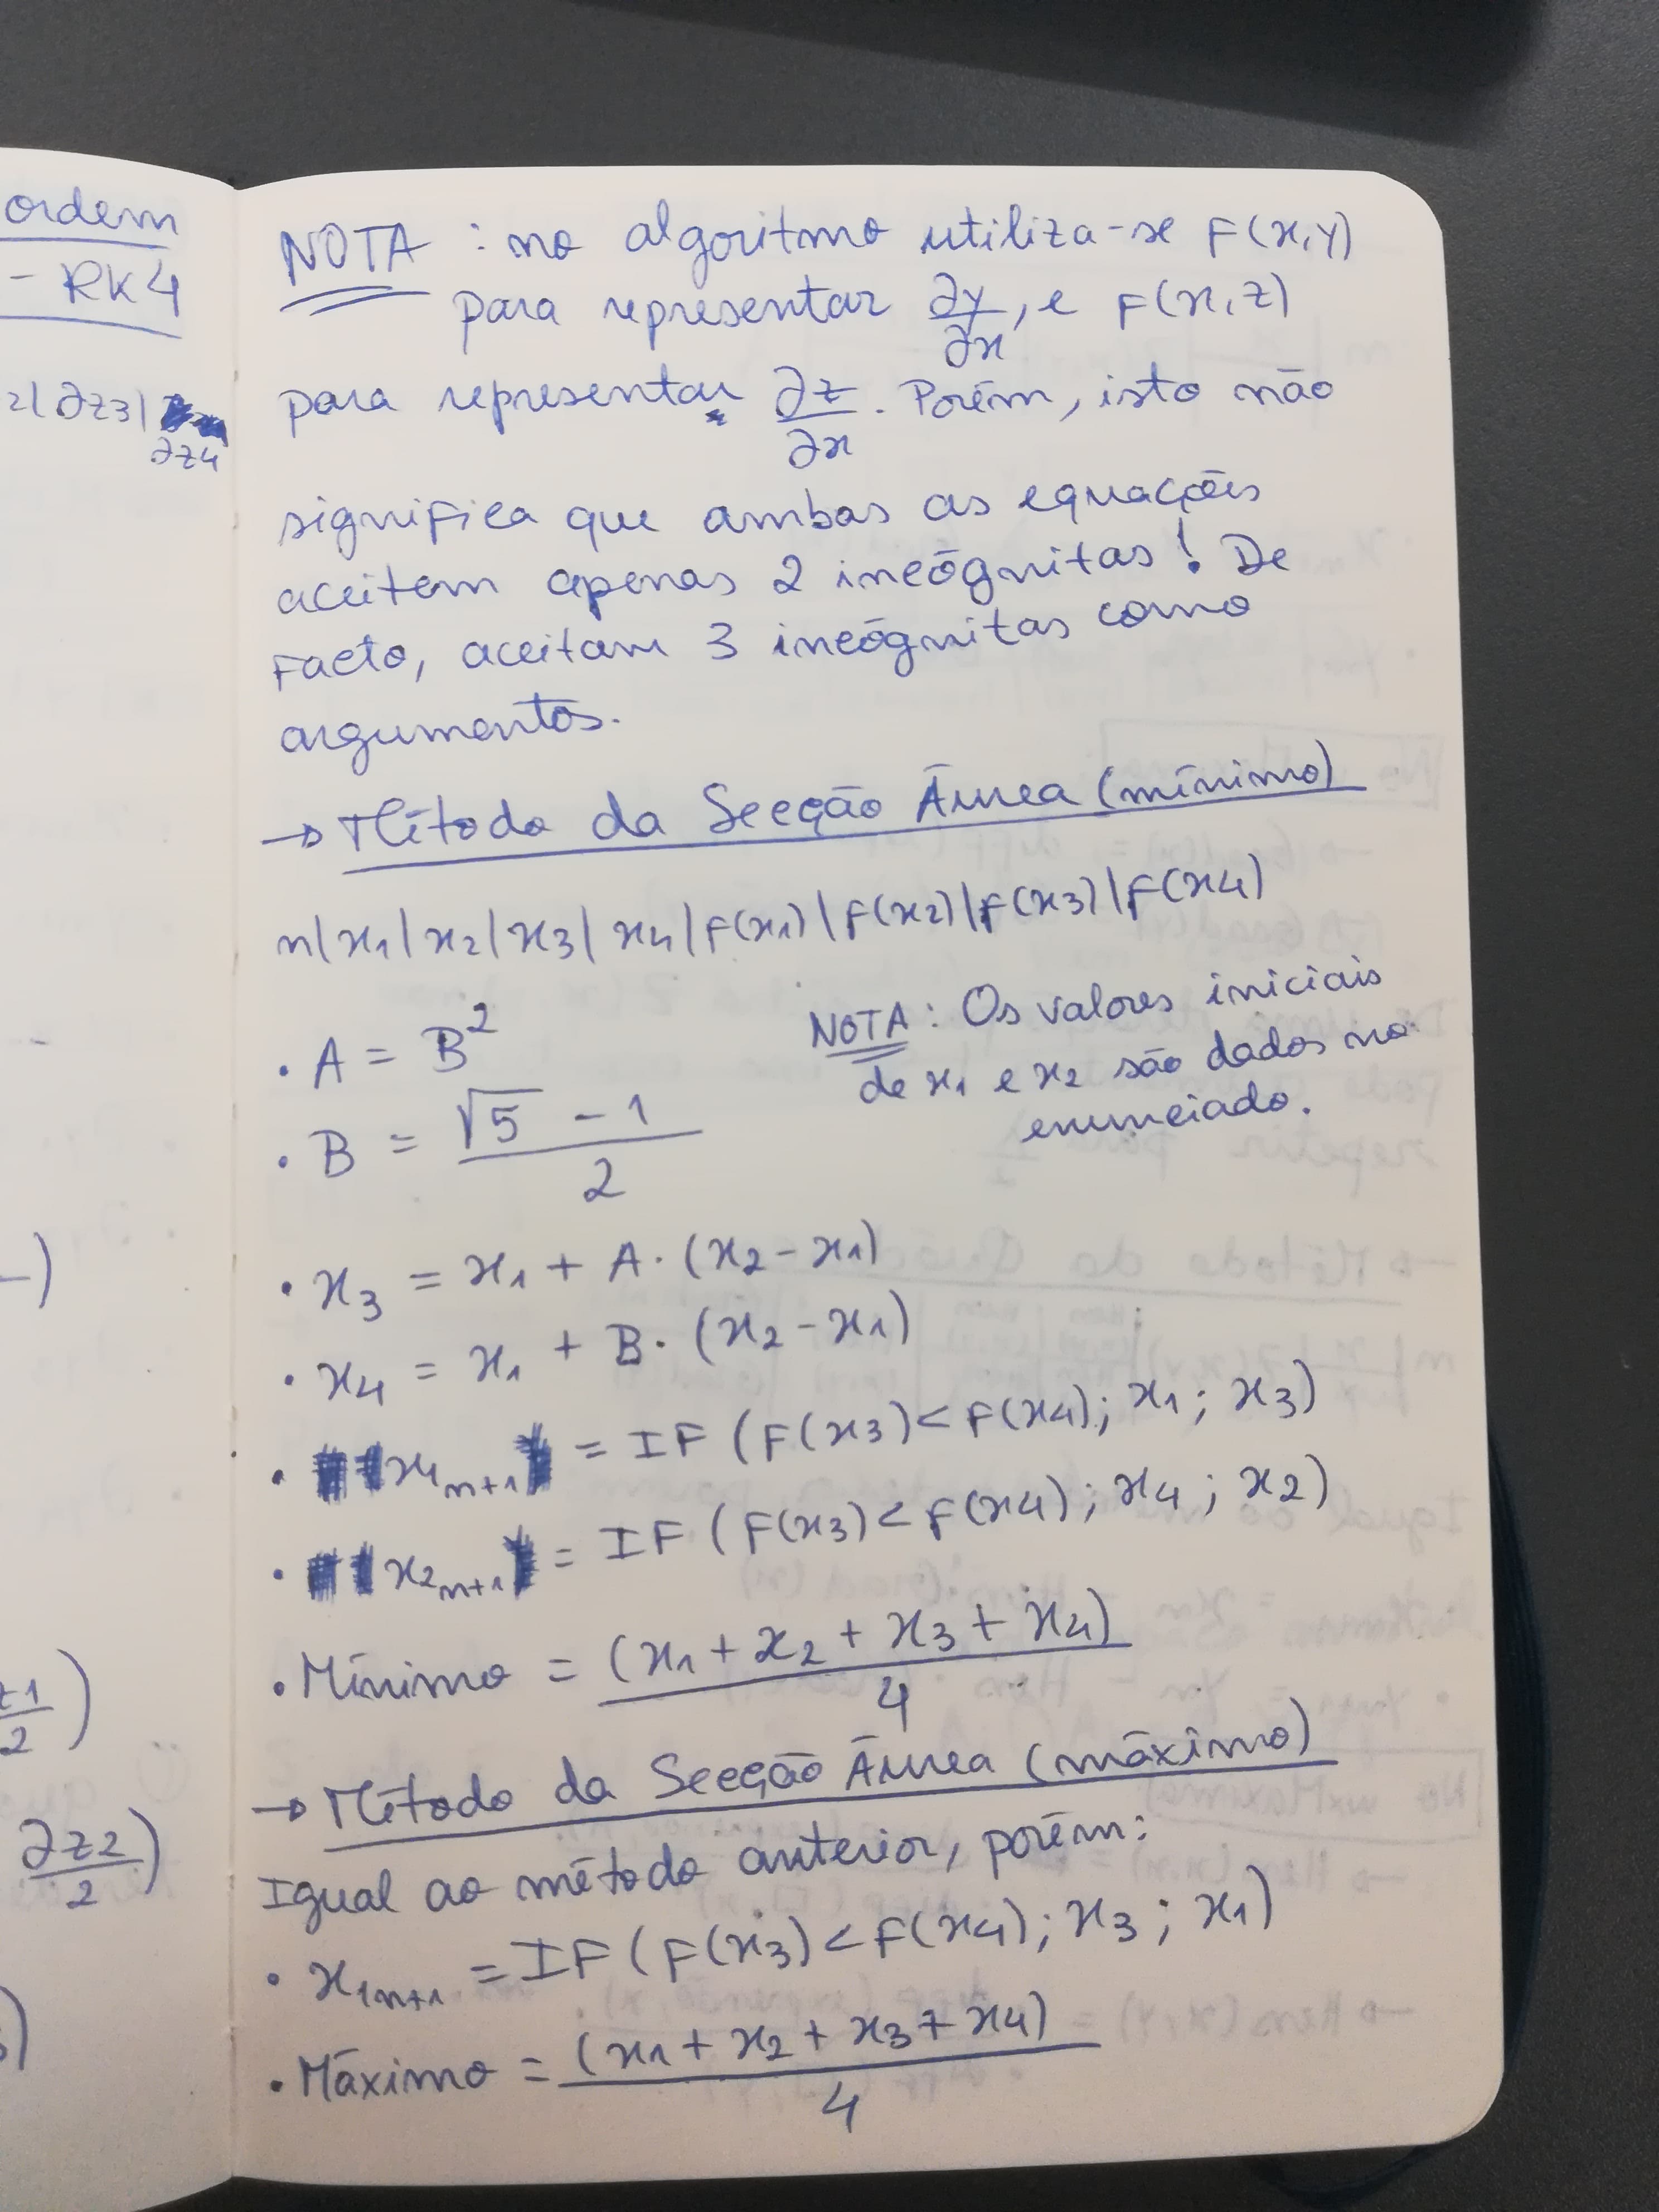 ordem
- RK4
z | ∂z3 |
∂z4
z1
2
∂z2
2
NOTA : no algoritmo utiliza-se F(x,y)
para representar ∂y/∂x, e F(x,z)
para representar ∂z/∂x. Porém, isto não
significa que ambas as equações
aceitem apenas 2 incógnitas! De
facto, aceitam 3 incógnitas como
argumentos.
→ Método da Secção Áurea (mínimo)
n | x1 | x2 | x3 | x4 | F(x1) | F(x2) | F(x3) | F(x4)
• A = B²
NOTA : Os valores iniciais
de x1 e x2 são dados no
enunciado.
• B = (√5 - 1)/2
• x3 = x1 + A · (x2 - x1)
• x4 = x1 + B · (x2 - x1)
• x1n+1 = IF (F(x3) < F(x4); x1 ; x3)
• x2n+1 = IF (F(x3) < F(x4); x4 ; x2)
• Mínimo = (x1 + x2 + x3 + x4)/4
→ Método da Secção Áurea (máximo)
Igual ao método anterior, porém:
• x1n+1 = IF (F(x3) < F(x4); x3 ; x1)
• Máximo = (x1 + x2 + x3 + x4)/4